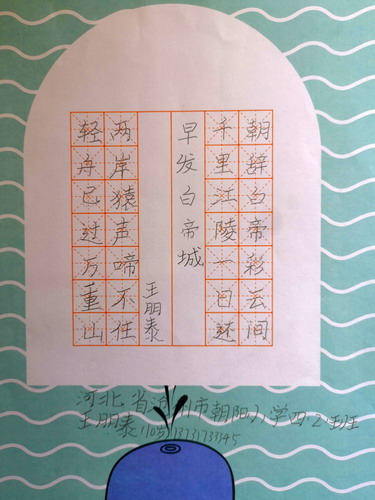 朝辞白帝彩云间
千里江陵一日还
早发白帝城
王朋泰
两岸猿声啼不住
轻舟已过万重山
河北省 州市朝阳小学四·2班
王朋泰 10岁